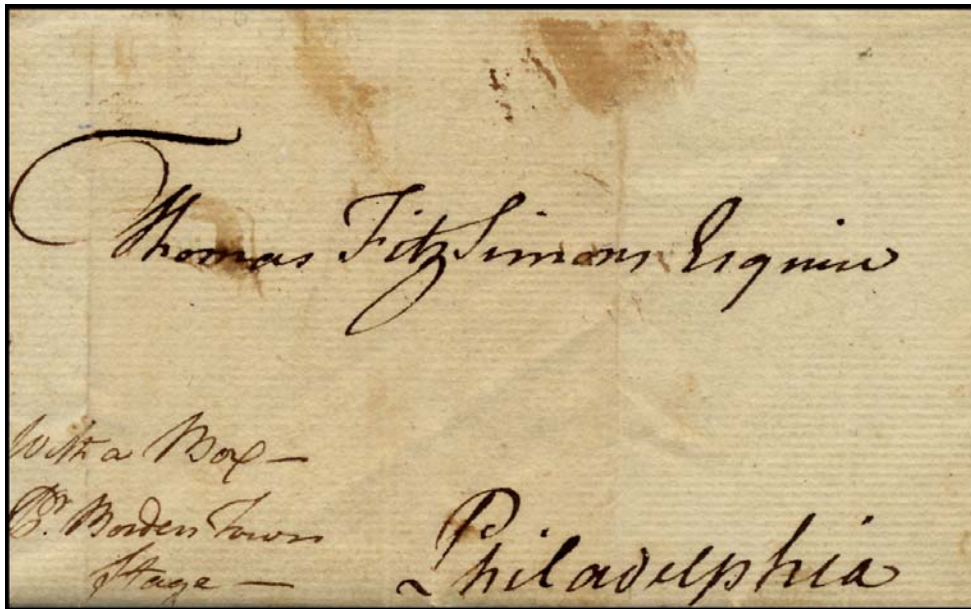 Thomas FitzSimons Esquire
With a Box —
Pr. Borden Town
Stage —
Philadelphia